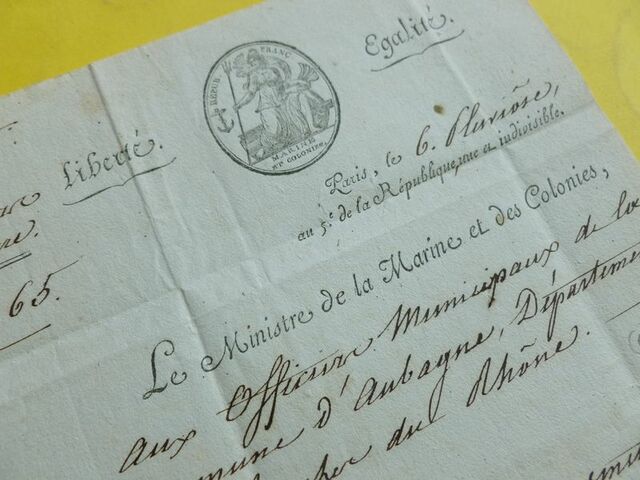 Liberté.
REPUB. FRANC.
MARINE
ET COLONIES.
Egalité.
65.
Paris, le 6. Pluviôse,
au 5.e de la République, une et indivisible.
Le Ministre de la Marine et des Colonies,
aux Officiers Municipaux de la
mune d'Aubagne, Département
du Rhône.